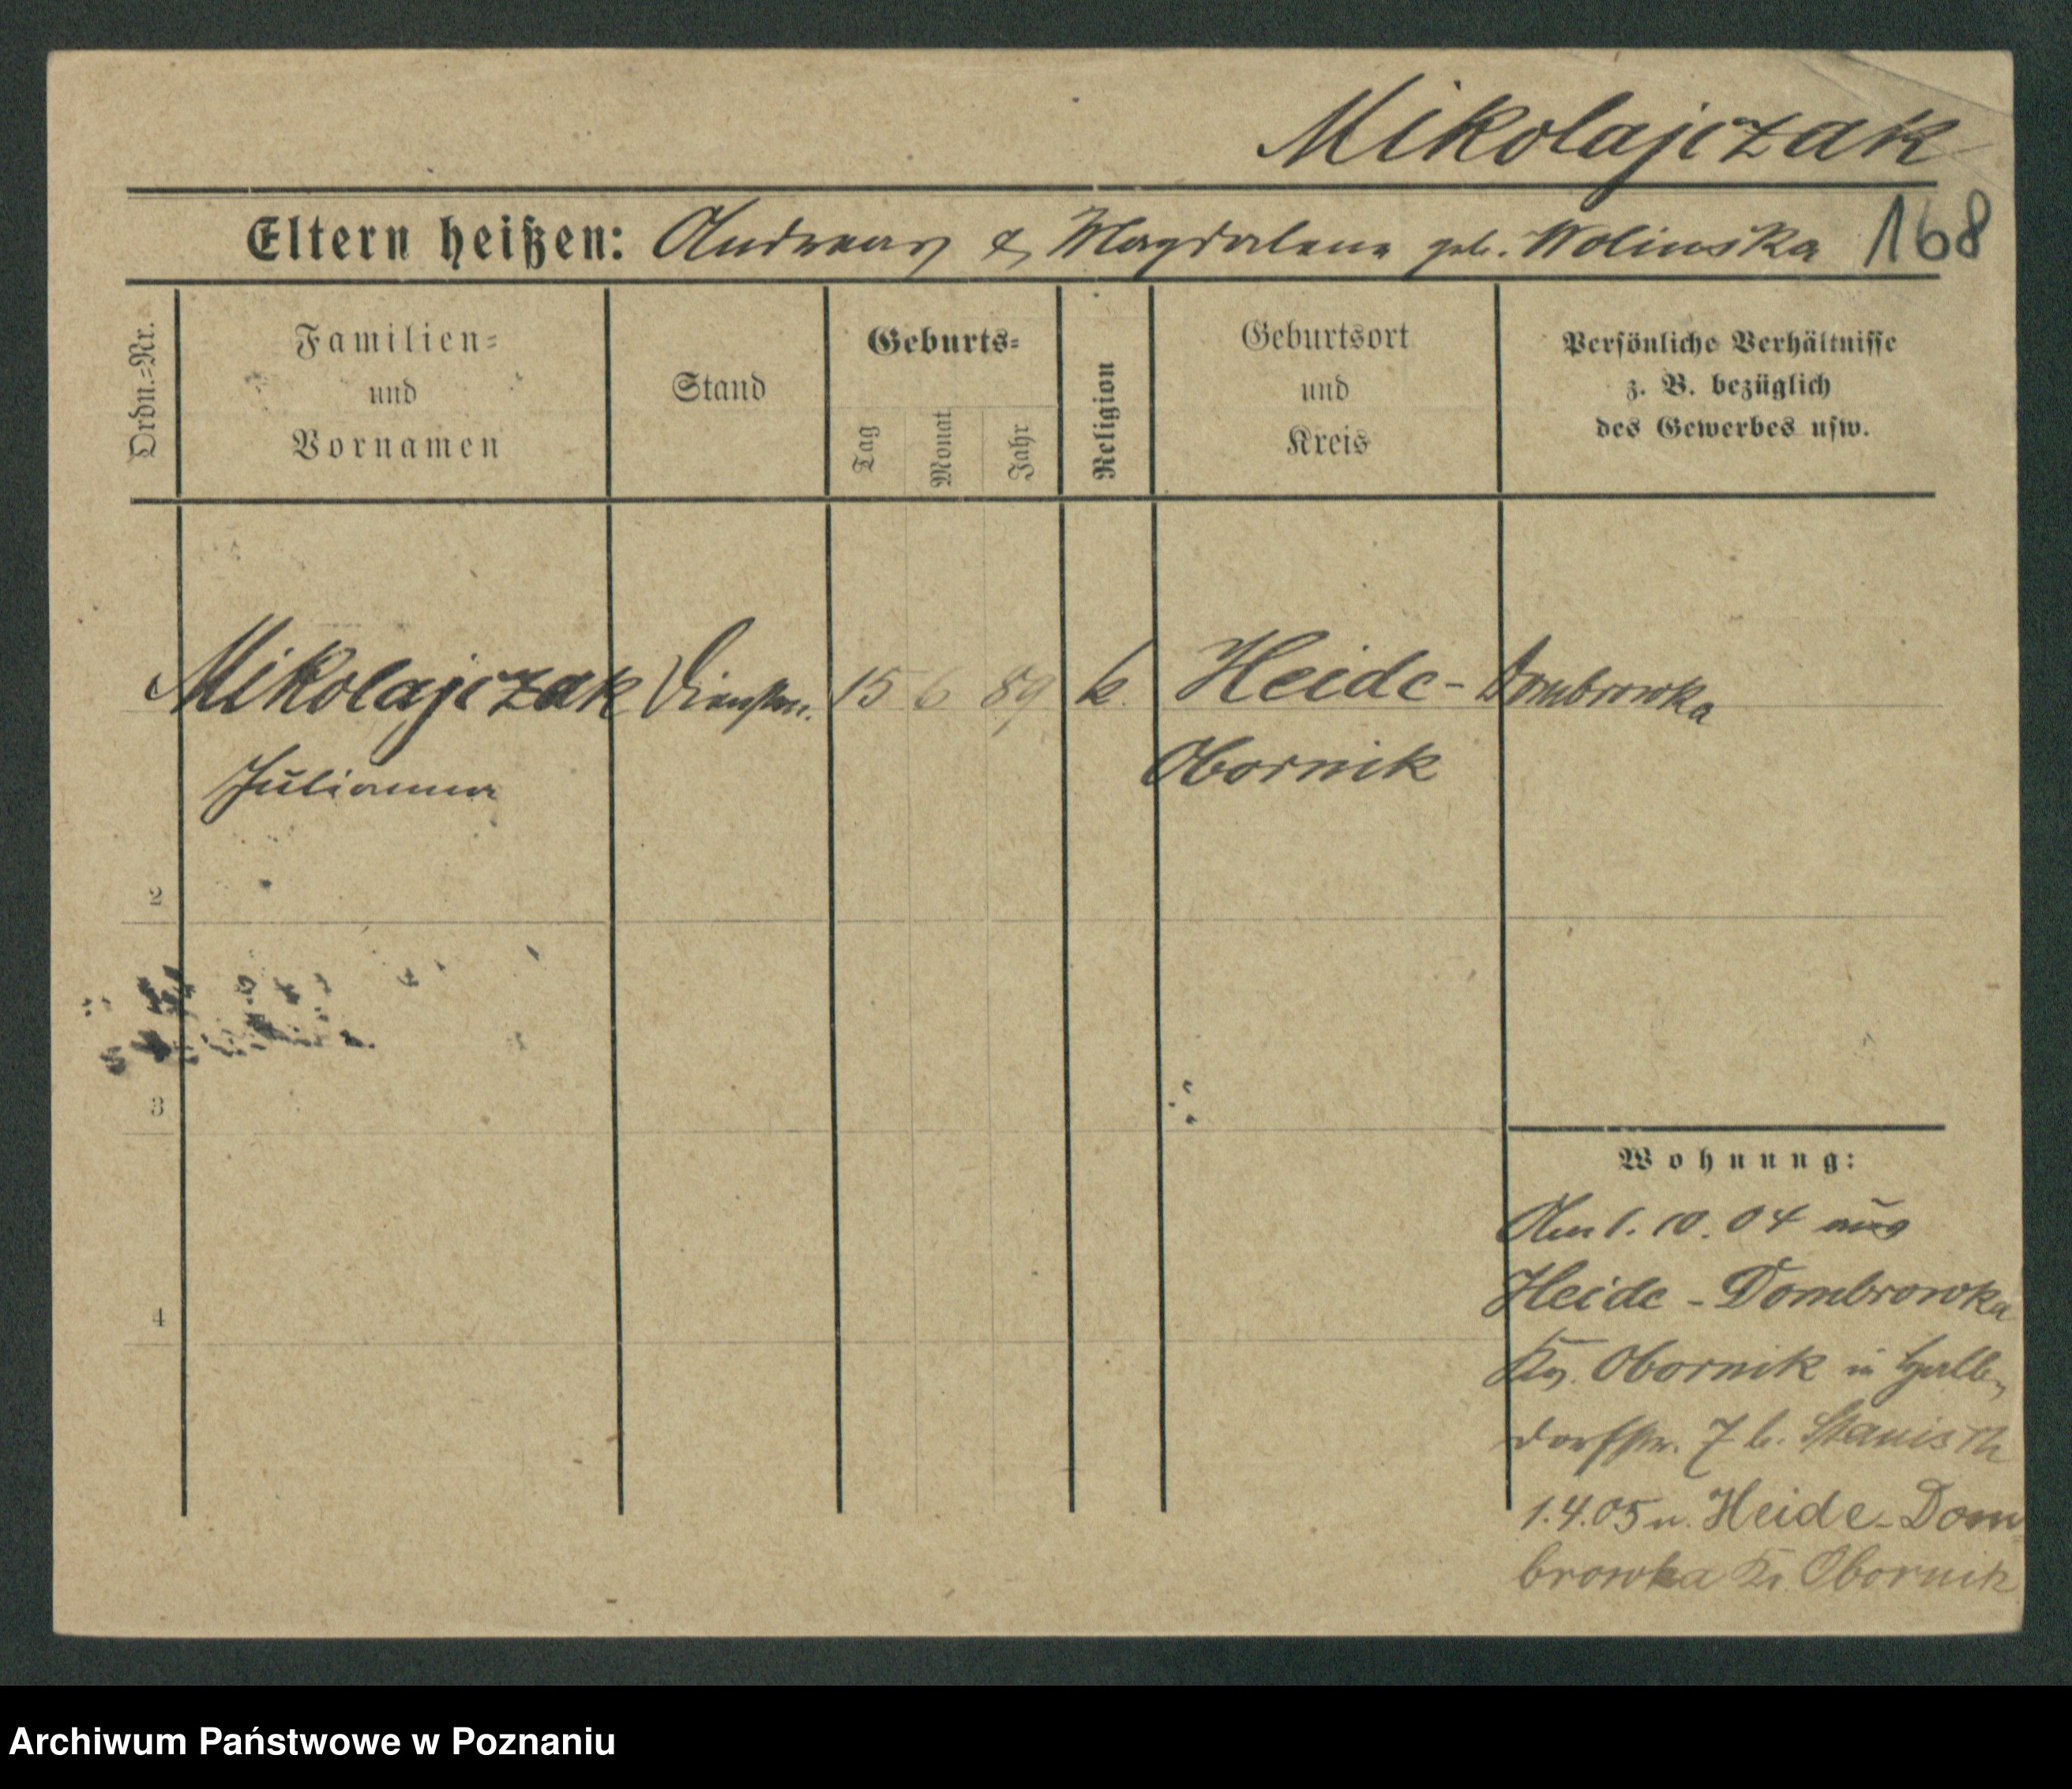 Mikolajczak
Eltern heißen: Andreas & Magdalena geb. Wolinska 168
Ordn.=Nr.
Familien=
und
Vornamen
Stand
Geburts=
Tag
Monat
Jahr
Religion
Geburtsort
und
Kreis
Persönliche Verhältnisse
z. B. bezüglich
des Gewerbes usw.
Mikolajczak Dienstm. 15 6 89 k. Heide-Dombrowka
Julianna Obornik
2
3
Wohnung:
Am 1. 10. 04 aus
Heide - Dombrowka
4
Kr. Obornik in Halb
dorfstr. 7 b. Stanis
1.4.05 n. Heide-Dom
browka Kr. Obornik
Archiwum Państwowe w Poznaniu